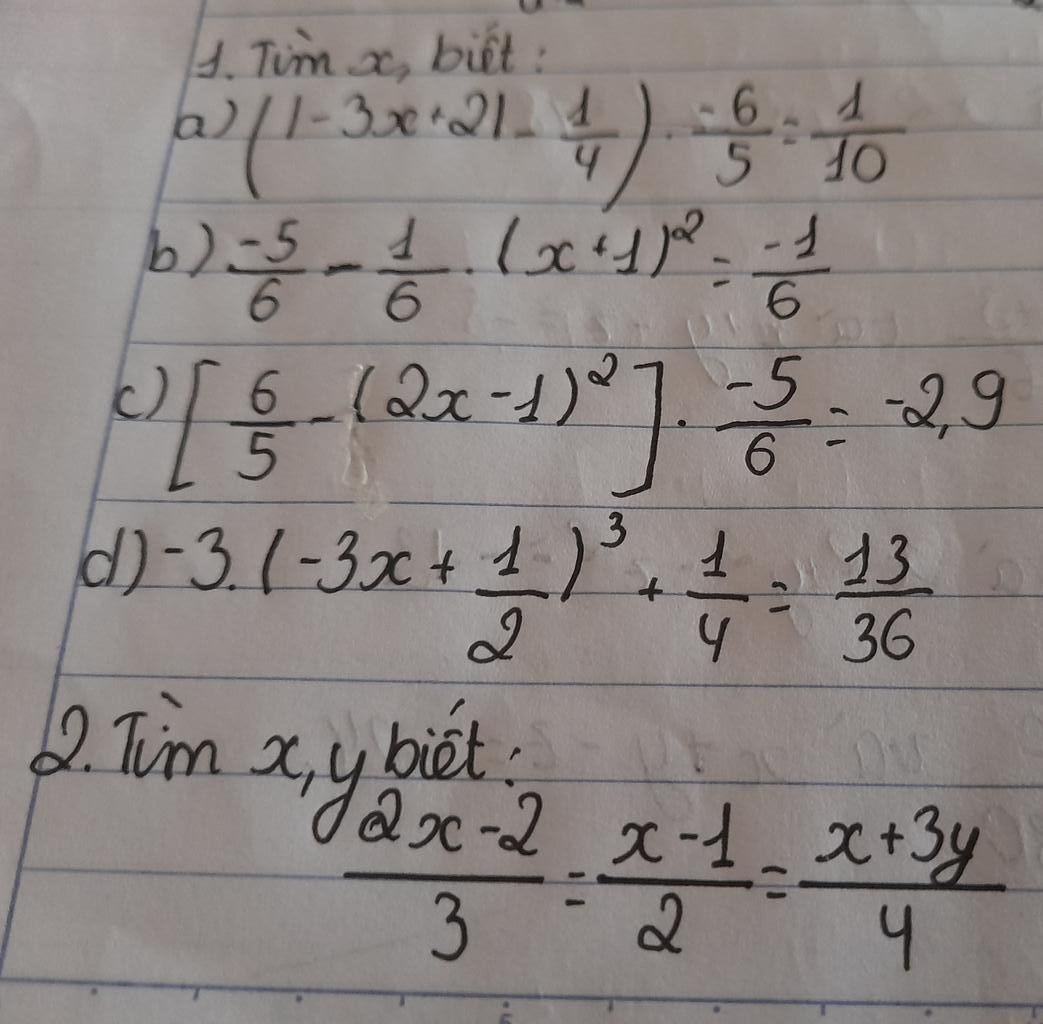 1. Tìm x, biết:
a) (|-3x+2| - 1/4) . -6/5 = 1/10
b) -5/6 - 1/6 . (x+1)² = -1/6
c) [6/5 - (2x-1)²] . -5/6 = -2,9
d) -3.(-3x + 1/2)³ + 1/4 = 13/36
2. Tìm x, y biết:
2x-2/3 = x-1/2 = x+3y/4